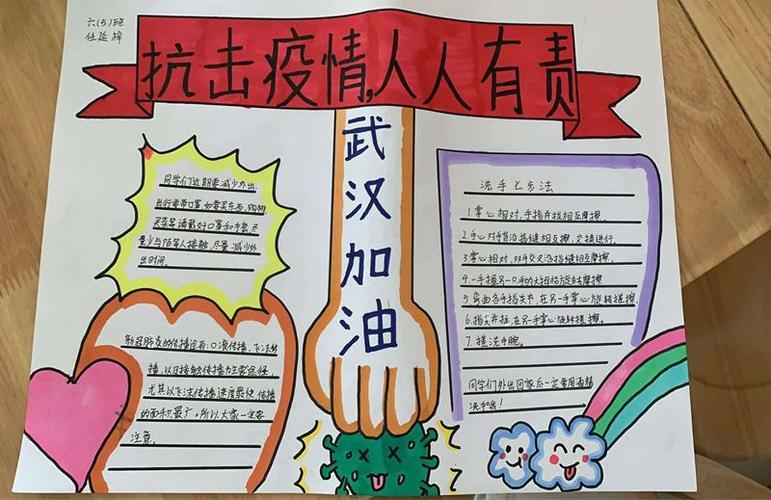 六(5)班
任延梓
抗击疫情,人人有责
武汉加油
同学们近期要减少外出.
出行要带口罩,如需买东西,购物
买菜等请戴好口罩和手套,尽
量少与陌等人接触,尽量减少外
出时间.
新冠肺炎的传播途有:口液传播、飞沫传
播,以及接触传播为主要途径.
尤其以飞沫传播速度最快传播
的面积最广,所以大家一定要
注意.
洗手七步法
1.掌心相对,手指并拢相互摩擦.
2.手心对手背沿指缝相互摩擦,交换进行.
3.掌心相对,双手交叉沿指缝相互摩擦.
4.一手握另一只手的大拇指旋转摩擦.
5.弯曲各手指关节,在另一手掌心旋转搓擦.
6.指尖并拢,在另一手掌心旋转搓擦.
7.搓洗手腕.
同学们外出回家后一定要用
洗手哦!